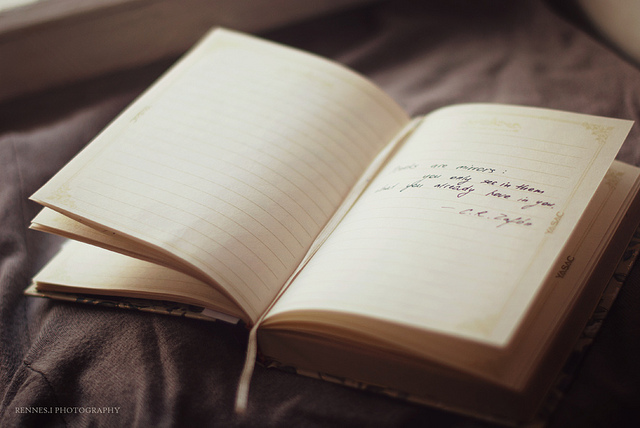 Books are mirrors:
you only see in them
what you already have in you.
- C.R. Zafón
YASAC
YASAC
RENNES.I PHOTOGRAPHY